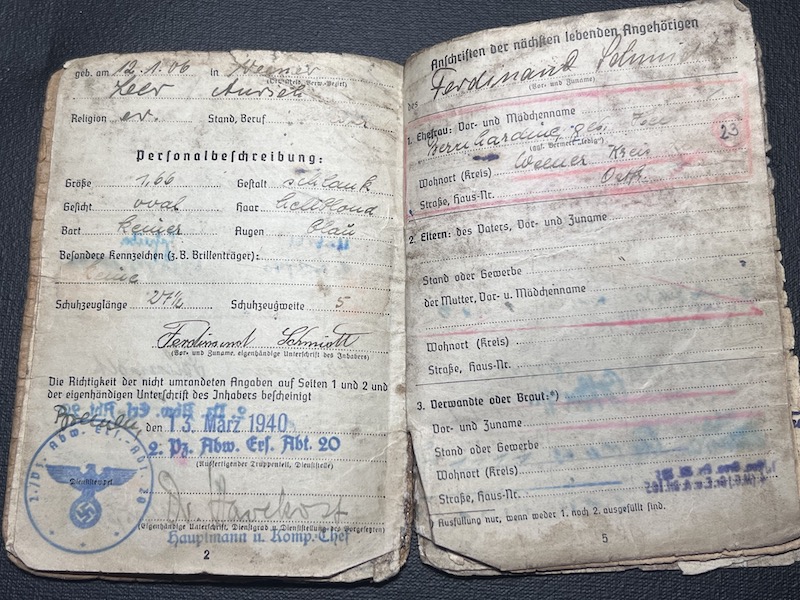 geb. am 12.1.06 in Weener
(Ort, Kreis, Verw.-Bezirk)
Leer
Religion ev. Stand, Beruf
Personalbeschreibung:
Größe 1,66 Gestalt schlank
Gesicht oval Haar
Bart keiner Augen blau
Besondere Kennzeichen (z. B. Brillenträger):
keine
Schuhzeuglänge 27½ Schuhzeugweite 5
Ferdinand Schmidt
(Vor- und Zuname, eigenhändige Unterschrift des Inhabers)
Die Richtigkeit der nicht umrandeten Angaben auf Seiten 1 und 2 und
der eigenhändigen Unterschrift des Inhabers bescheinigt
den 13. März 1940
2. Pz. Abw. Ers. Abt. 20
(Ausfertigender Truppenteil, Dienststelle)
Dienststempel
(Eigenhändige Unterschrift, Dienstgrad u. Dienststellung des Vorgesetzten)
Hauptmann u. Komp.-Chef
2
Anschriften der nächsten lebenden Angehörigen
des Ferdinand Schmidt
(Vor- und Zuname)
1. Ehefrau: Vor- und Mädchenname
Bernhardine geb.
(ggf. Vermerk „ledig“)
23
Wohnort (Kreis) Weener Kreis
Straße, Haus-Nr.
2. Eltern: des Vaters, Vor- und Zuname
Stand oder Gewerbe
der Mutter, Vor- u. Mädchenname
Wohnort (Kreis)
Straße, Haus-Nr.
3. Verwandte oder Braut:*)
Vor- und Zuname
Stand oder Gewerbe
Wohnort (Kreis)
Straße, Haus-Nr.
*) Ausfüllung nur, wenn weder 1. noch 2. ausgefüllt sind.
5